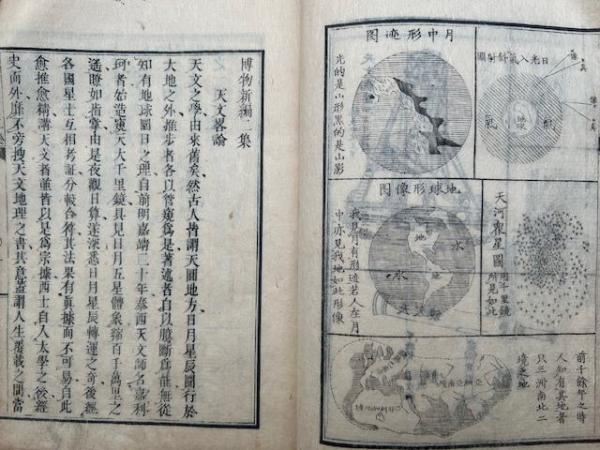 日光入氣斜射圖
氣
地球
氣
月中形迹圖
光的是山形黑的是山影
天河衆星圖
用千里鏡
所見如此
地球形像圖
我見月有形迹若人在月
中亦見我地如此形像
地
水
水
前千餘年之時
人知有其地者
只三洲南北二
境之地
博物新編 集
天文畧論
天文之學、由來舊矣、然古人皆謂天圓地方、日月星辰圍行於
大地之外、推步者各以管窺爲是、著述者自以臆斷爲能、無從
知有地球圓日之理、自前明嘉靖二十年、泰西天文師名嘉利
珂者、始造窺天大千里鏡、具見日月五星體象、縮百千萬里之
遙、瞭如指掌、由是夜觀日算、遂深悉日月星辰轉運之奇、後經
各國星士互相考證、分較合符、其法果有眞據而不可易、自此
愈推愈精、講天文者、皆以是爲宗據、西士自入太學之後、經
史而外、靡不旁搜天文地理之書、其意蓋謂人生覆載之間、當